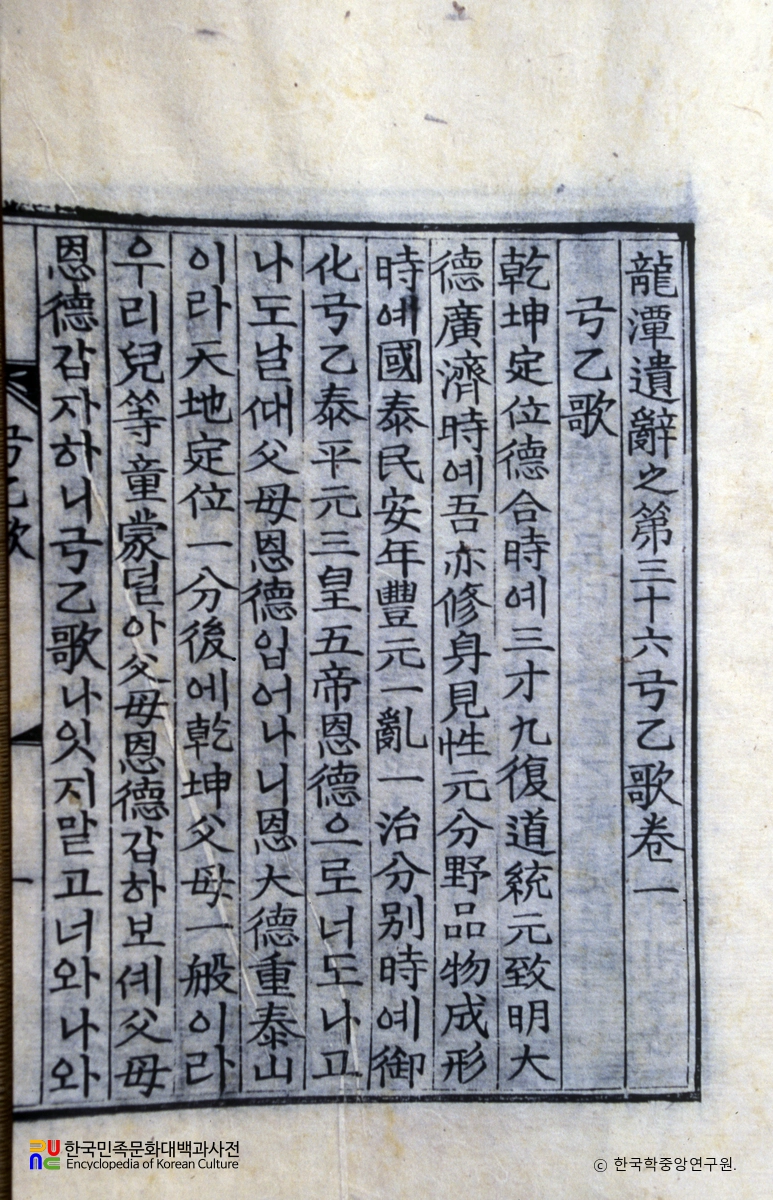 龍潭遺辭之第三十六弓乙歌卷一
弓乙歌
乾坤定位德合時예三才九復道統元致明大
德廣濟時예吾亦修身見性元分野品物成形
時예國泰民安年豐元一亂一治分別時예御
化弓乙泰平元三皇五帝恩德으로너도나고
나도날대父母恩德입어나니恩大德重泰山
이라天地定位一分後에乾坤父母一般이라
우리兒等童蒙덜아父母恩德갑하보셰父母
恩德갑자하니弓乙歌나잇지말고너와나와
弓乙歌
一
한국민족문화대백과사전
Encyclopedia of Korean Culture
© 한국학중앙연구원.